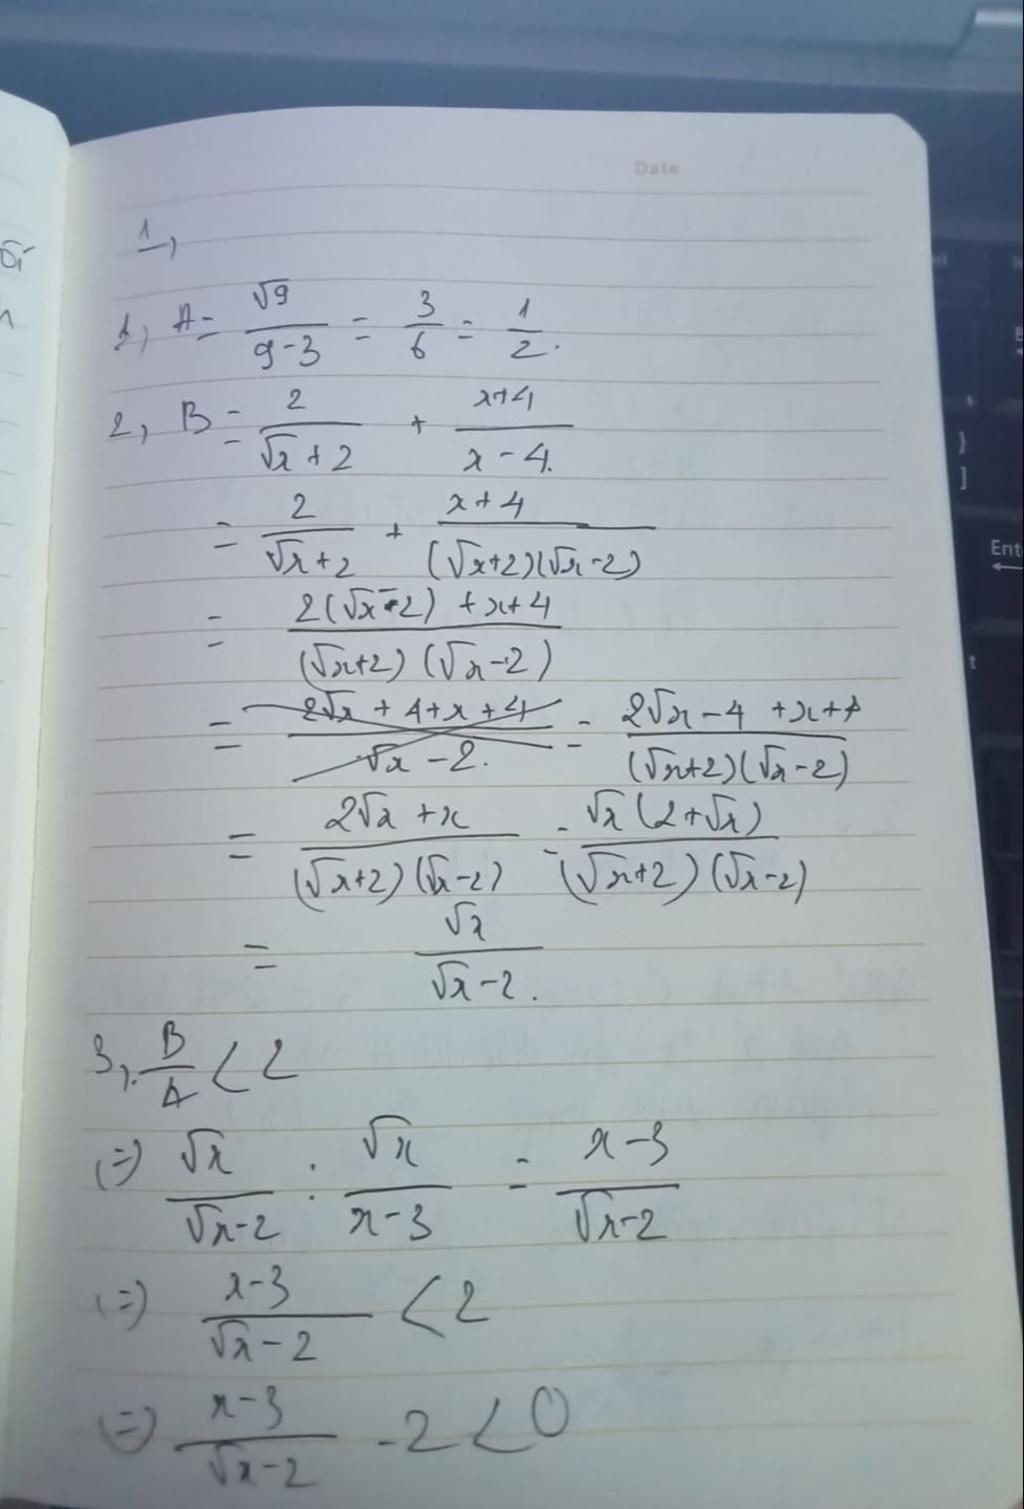 Date
1,
1, A = √9/(9-3) = 3/6 = 1/2.
2, B = 2/(√x+2) + (x+4)/(x-4).
= 2/(√x+2) + (x+4)/((√x+2)(√x-2))
= (2(√x-2)+x+4)/((√x+2)(√x-2))
= (2√x+4+x+4)/(√x-2). = (2√x-4+x+4)/((√x+2)(√x-2))
= (2√x+x)/((√x+2)(√x-2)) = (√x(2+√x))/((√x+2)(√x-2))
= √x/(√x-2).
3, B/A < 2
(=) √x/(√x-2) : √x/(x-3) = (x-3)/(√x-2)
(=) (x-3)/(√x-2) < 2
(=) (x-3)/(√x-2) - 2 < 0
Ent
t
}
]